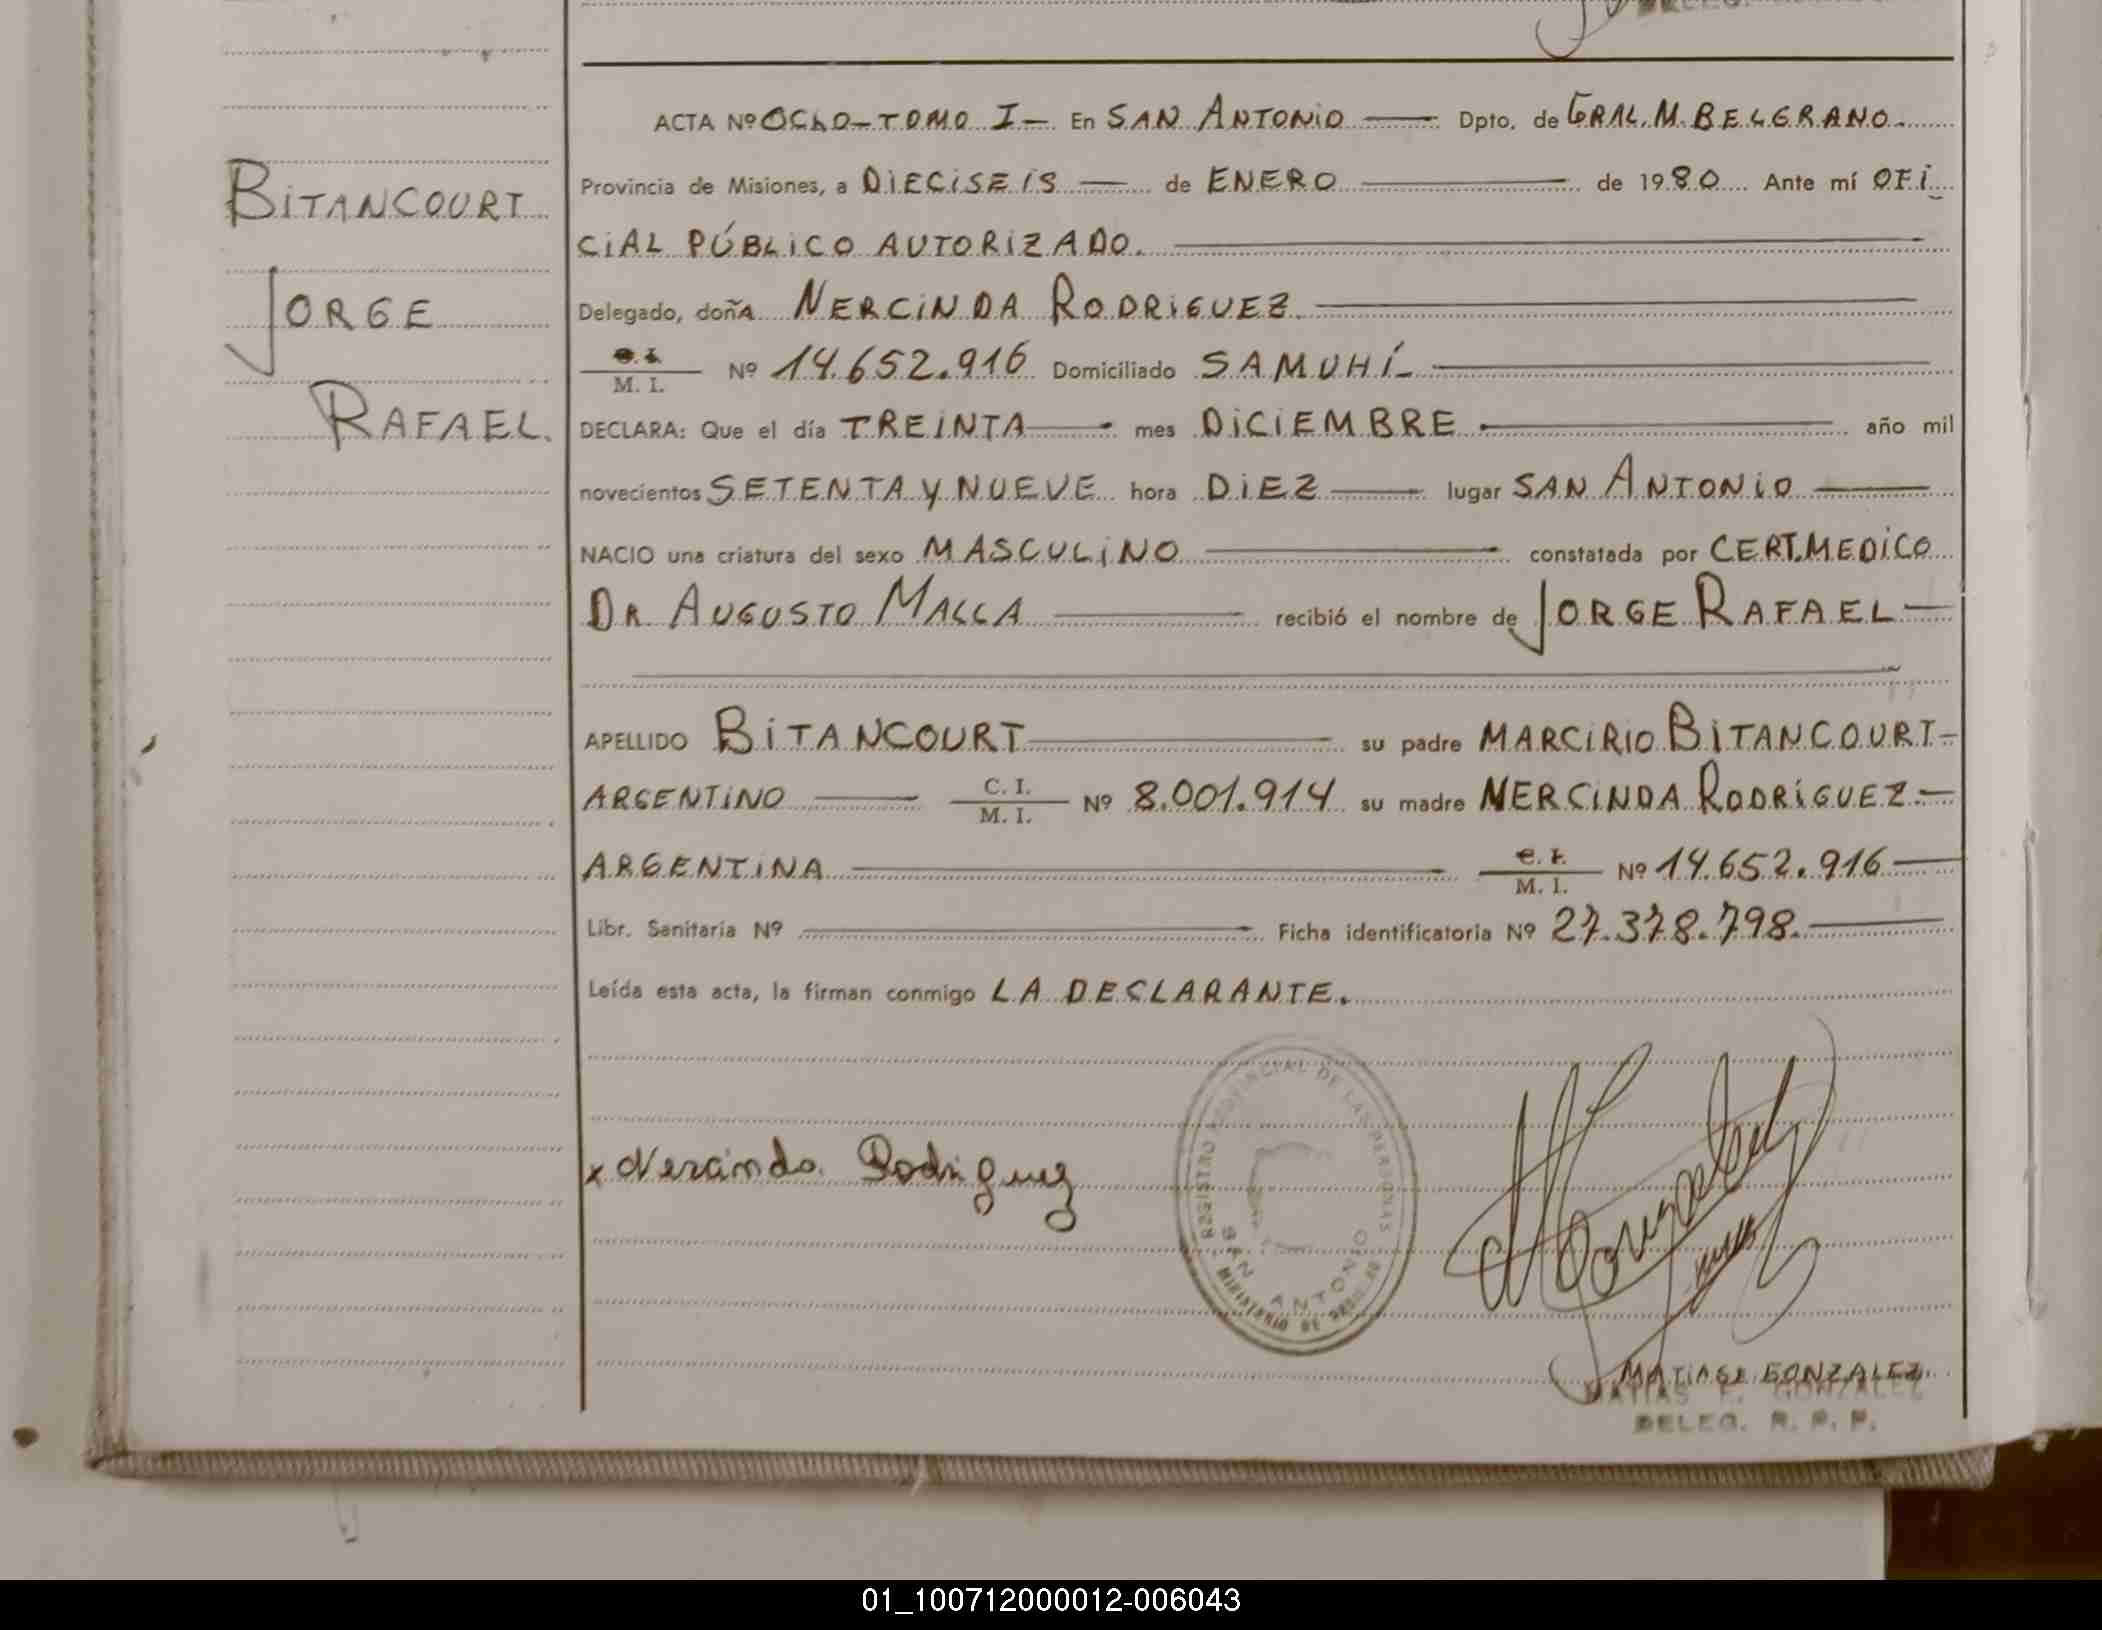 ACTA Nº OCHO - TOMO I - En SAN ANTONIO Dpto. de GRAL. M. BELGRANO.
Provincia de Misiones, a DIECISEIS de ENERO de 1980 Ante mí OFI
CIAL PÚBLICO AUTORIZADO.
Delegado, doñA NERCINDA RODRIGUEZ.
C. I. / M. I. Nº 14.652.916 Domiciliado SAMUHÍ
DECLARA: Que el día TREINTA mes DICIEMBRE año mil
novecientos SETENTA Y NUEVE hora DIEZ lugar SAN ANTONIO
NACIO una criatura del sexo MASCULINO constatada por CERT. MEDICO
DR. AUGUSTO MALLA recibió el nombre de JORGE RAFAEL
APELLIDO BITANCOURT su padre MARCIRIO BITANCOURT
ARGENTINO C. I. / M. I. Nº 8.001.914 su madre NERCINDA RODRÍGUEZ
ARGENTINA C. I. / M. I. Nº 14.652.916
Libr. Sanitaria Nº Ficha identificatoria Nº 27.378.798.
Leída esta acta, la firman conmigo LA DECLARANTE.
BITANCOURT
JORGE
RAFAEL.
x Nercinda Rodriguez
REGISTRO PROVINCIAL DE LAS PERSONAS
SAN ANTONIO
MINISTERIO DE
MATIAS E. GONZALEZ
MATIAS E. GONZALEZ
DELEG. R. P. P.
01_100712000012-006043